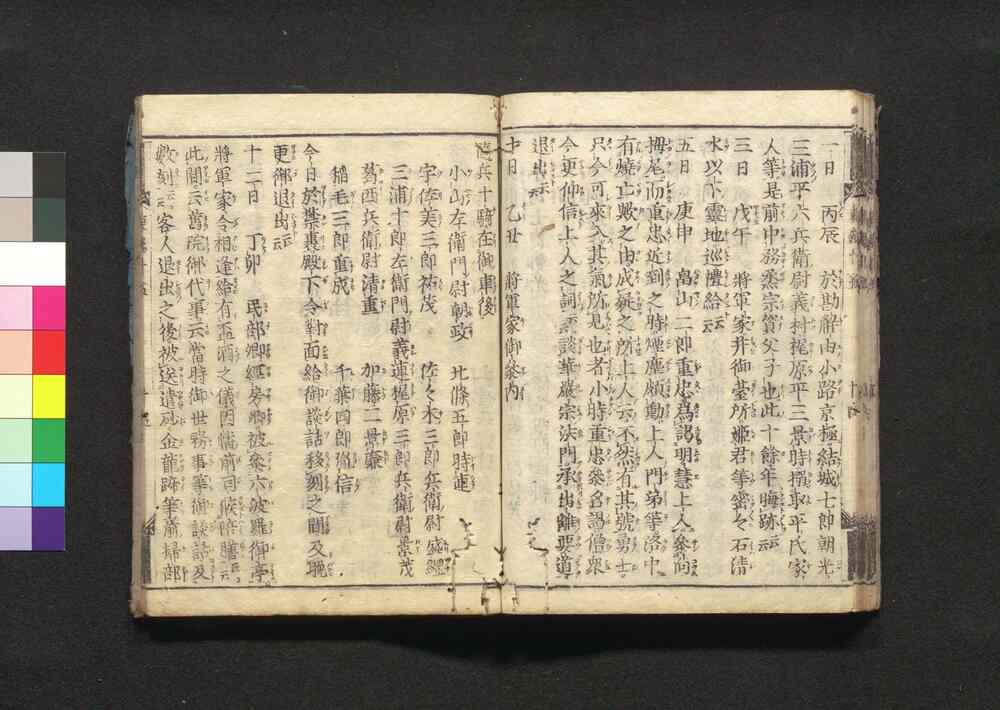 一日　丙辰　於勘解由小路京極結城七郎朝光
三浦平六兵衛尉義村梶原平三景時搦取平氏家
人等是前中務丞宗資父子也此十餘年晦跡云云
三日　戊午　將軍家并御臺所姫君等密々石清
水以下靈地巡禮給云云
五日　庚申　畠山二郎重忠爲謁明慧上人參向
栂尾而重忠近到之時煙塵頗動上人門弟等洛中
有燒亡歟之由成疑之所上人云不然有其號勇士
只今可來入其氣所見也者小時重忠參名謁僧衆
令更仲信上人之詞云談華嚴宗法門承出離要道
退出云云
十日　乙丑　將軍家御參内
隨兵十騎在御車後
小山左衛門尉朝政　北條五郎時連
宇佐美三郎祐茂　佐々木三郎兵衛尉盛綱
三浦十郎左衛門尉義連梶原三郎兵衛尉景茂
葛西兵衛尉清重　加藤二景廉
稲毛三郎重成　千葉四郎胤信
今日於禁裏殿下令對面給御談話移刻之間及晩
更御退出云云
十一日　丁卯　民部卿經房卿被參六波羅御亭
將軍家令相逢給有盃酒之儀因幡前司候陪膳云云
此間云舊院御代事云當時御世務事等御談話及
數刻云云客人退出之後被送遣砂金龍蹄等廣綱部